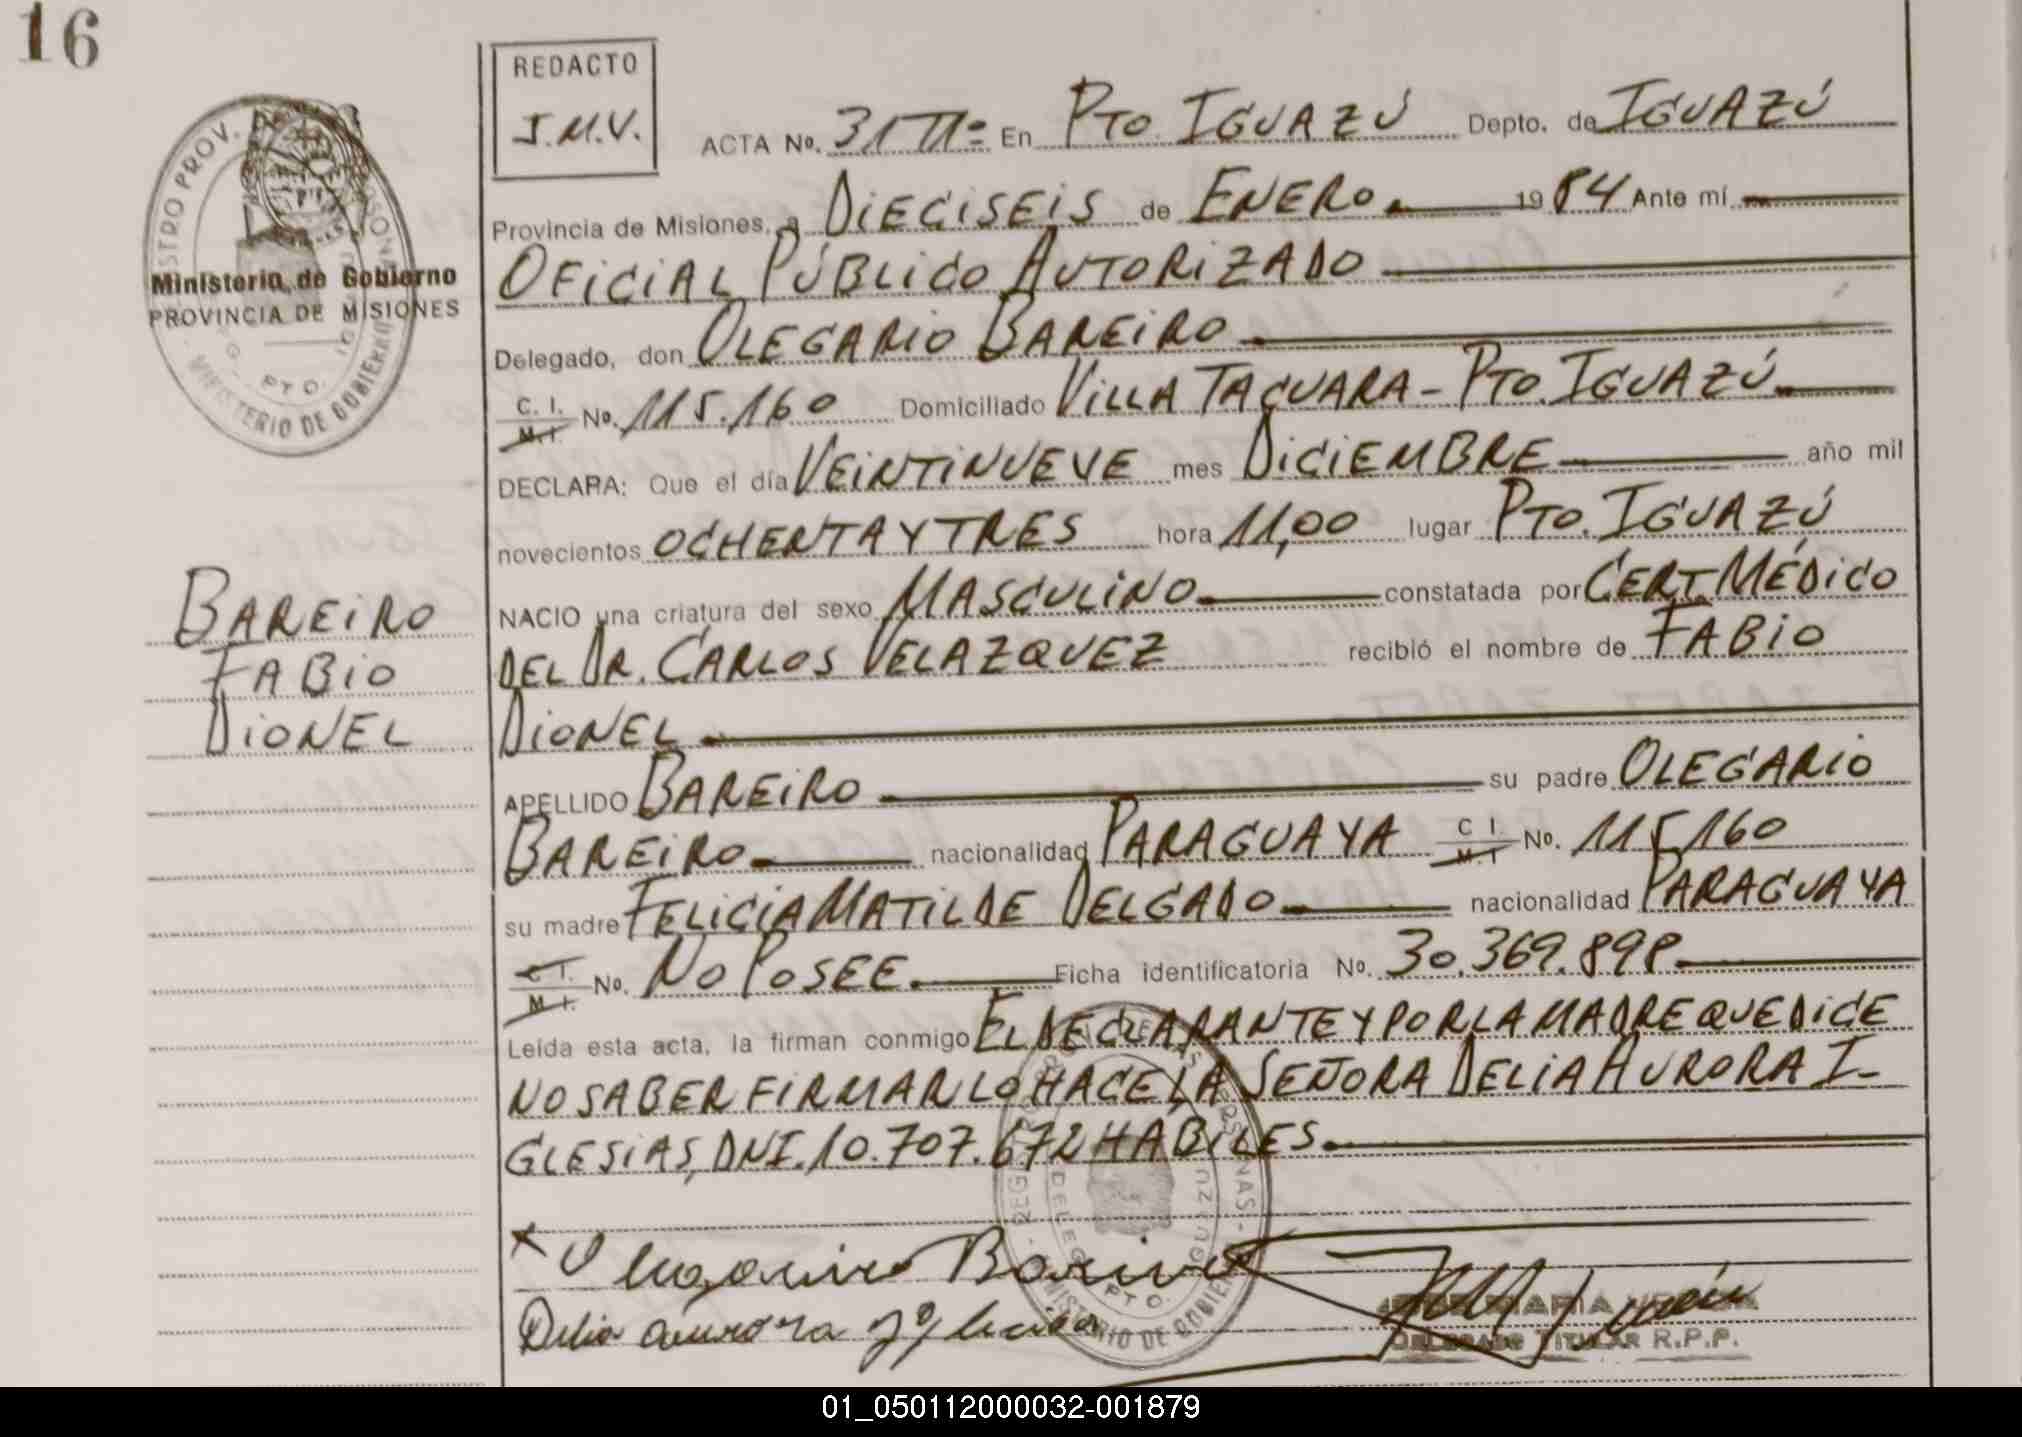 16
REDACTO
J.M.V.
ACTA No. 31 Tº En Pto. IGUAZÚ Depto. de IGUAZÚ
Provincia de Misiones, a DIECISEIS de ENERO. 19 84 Ante mí
OFICIAL PÚBLICO AUTORIZADO
Delegado, don OLEGARIO BAREIRO
C. I. M. I. No. 115.160 Domiciliado VILLA TACUARA - PTO. IGUAZÚ
DECLARA: Que el día VEINTINUEVE mes DICIEMBRE año mil
novecientos OCHENTA Y TRES hora 11,00 lugar PTO. IGUAZÚ
NACIO una criatura del sexo MASCULINO constatada por CERT. MÉDICO
DEL DR. CARLOS VELAZQUEZ recibió el nombre de FABIO
DIONEL
APELLIDO BAREIRO su padre OLEGARIO
BAREIRO nacionalidad PARAGUAYA C I. M. I No. 115 160
su madre FELICIA MATILDE DELGADO nacionalidad PARAGUAYA
C I. M. I. No. NO POSEE. Ficha identificatoria No. 30.369.898
Leída esta acta, la firman conmigo EL DECLARANTE Y POR LA MADRE QUE DICE
NO SABER FIRMAR LO HACE LA SEÑORA DELIA AURORA I-
GLESIAS, DNI. 10.707.672 HABILES.
Olegario Bareiro
Delia aurora Iglesias
DELEGADO TITULAR R.P.P.
Ministerio de Gobierno
PROVINCIA DE MISIONES
MINISTERIO DE GOBIERNO
PTO.
BAREIRO
FABIO
DIONEL
REGISTRO PROV. DE LAS PERSONAS
DELEG. PTO. IGUAZU
MINISTERIO DE GOBIERNO
01_050112000032-001879